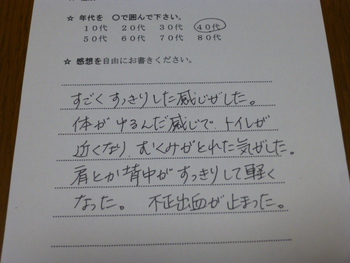 ☆ 年代を ○で囲んで下さい。
10代 20代 30代 40代
50代 60代 70代 80代
☆ 感想を自由にお書きください。
すごくすっきりした感じがした。
体がゆるんだ感じで、トイレが
近くなり、むくみがとれた気がした。
肩とか背中がすっきりして軽く
なった。 不正出血が止まった。